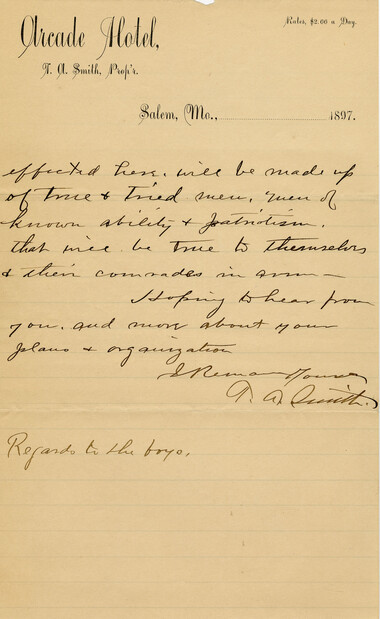 Arcade Hotel,
Rates, $2.00 a Day.
T. A. Smith, Prop'r.
Salem, Mo., 1897.
effected here. will be made up
of true & tried men, men of
known ability & patriotism.
that will be true to themselves
& their comrades in arms—
Hoping to hear from
you. and more about your
plans & organization
I Remain Yours
T. A. Smith.
Regards to the boys.